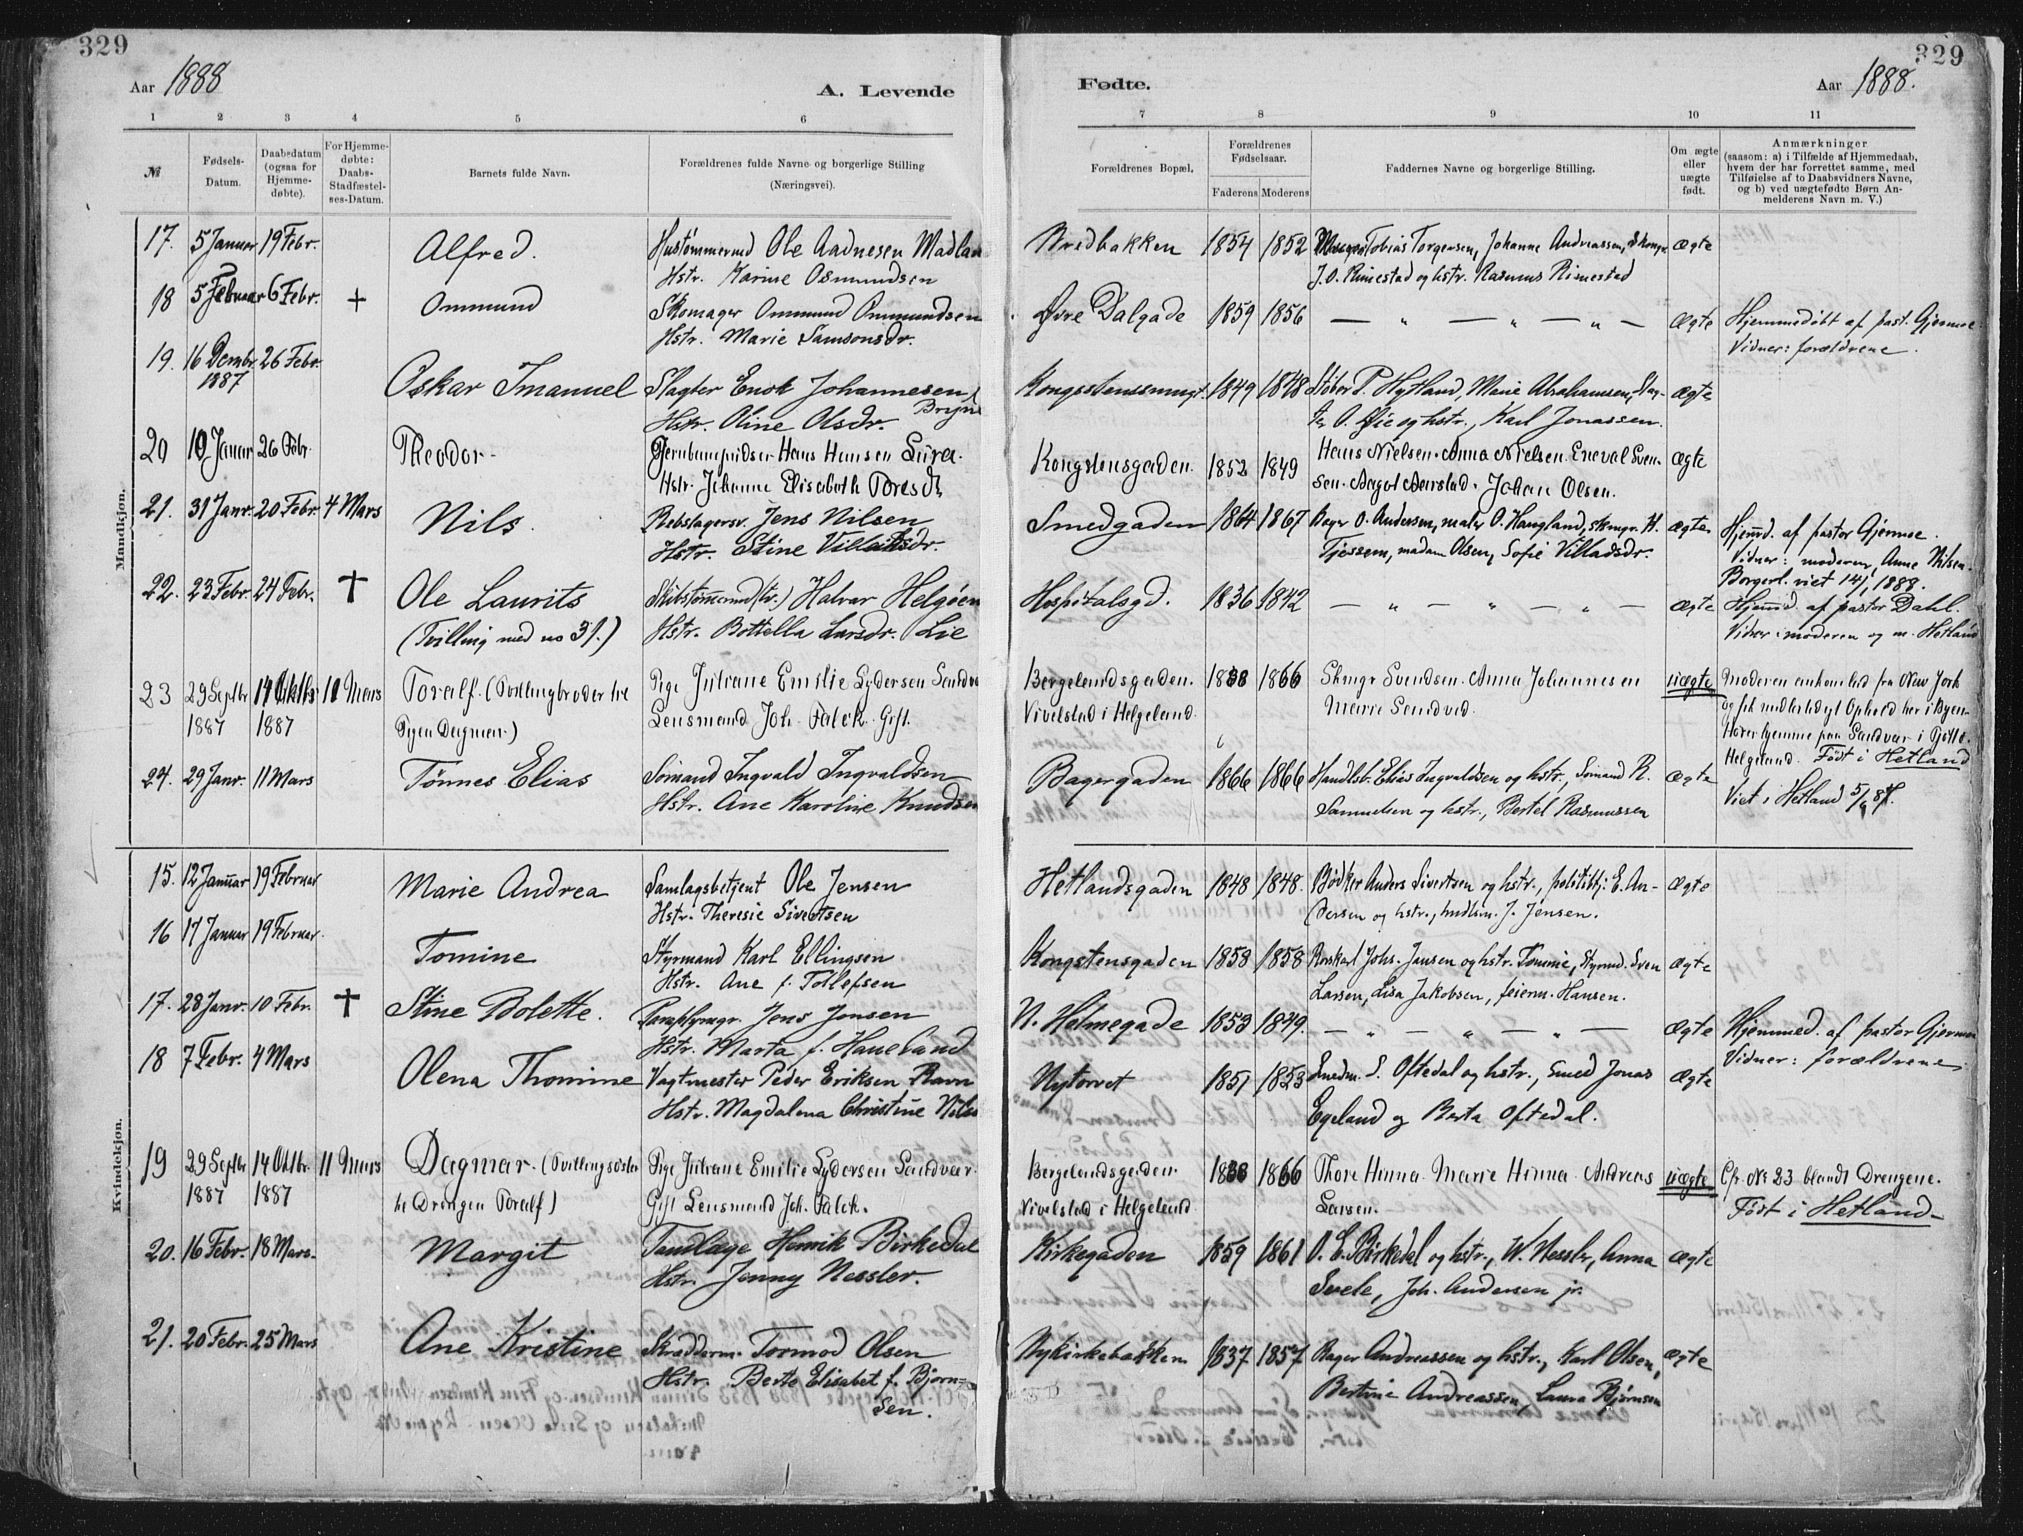 329
Aar 1888
A. Levende
1 2 3 4 5 6
№
Fødsels-
Datum.
Daabsdatum
(ogsaa for
Hjemme-
døbte).
For Hjemme-
døbte:
Daabs-
Stadfæstel-
ses-Datum.
Barnets fulde Navn.
Forældrenes fulde Navne og borgerlige Stilling
(Næringsvei).
Mandkjøn.
17. 5 Januar 19 Febr. Alfred. Hustømmermd Ole Aadnesen Madlan
Hstr. Marine Osmundsen
18 5 Februar 6 Febr. + Ommund Skomager Ommund Ommundsen
Hstr. Marie Samsonsdr.
19. 16 Decmbr 26 Febr.
1887
Oskar Imanuel Slagter Enok Johannesen
Bryne
Hstr. Oline Olsdr.
20 10 Januar 26 Febr. Theodor. Hans Hansen Lura.
Hstr. Johanne Elisabeth Toresdr.
21. 31 Janr. 20 Febr. 4 Mars Nils. Rebslagersv. Jens Nilsen
Hstr. Stine Villadsdr.
22. 23 Febr. 24 Febr. † Ole Laurits Skibstømmermd (tr.) Halvar Helgøen
(Tvilling med no 31.) Hstr. Bottella Larsdr. Lie
23 29 Septbr 14 Oktbr 11 Mars Toralf. (Tvillingbroder til Pige Julrane Emilie Lydersen Sandv
1887 1887 Pigen Dagmar.) Lensmand Joh. Falck. Gift.
24. 29 Janr. 11 Mars Tønnes Elias Sømand Ingvald Ingvaldsen
Hstr. Ane Karoline Knudsen
Kvindekjøn.
15. 12 Januar 19 Februar Marie Andrea Samlagsbetjent Ole Jensen
Hstr. Theresie Sivertsen
16 17 Januar 19 Februar. Tomine Styrmand Karl Ellingsen
Hstr. Ane f. Tollefsen
17. 28 Janr. 10 Febr. † Stine Bolette. Paraplymgr. Jens Jensen
Hstr. Marta f. Haueland
18 7 Febr. 4 Mars Olena Thomine Vagtmester Peder Eriksen Ravn
Hstr. Magdalena Christine Nils
19 29 Septbr 14 Oktbr. 11 Mars Dagmar. (Tvillingsøster Pige Julrane Emilie Lydersen Sandvær.
1887 1887 til Drengen Toralf) Gift Lensmand Joh. Falck.
20. 16 Febr. 18 Mars. Margit Tandlæge Henrik Birkedal
Hstr. Jenny Nessler.
21. 20 Febr. 25 Mars Ane Kristine Skrædderm. Tormod Olsen
Hstr. Berte Elisabet f. Bjørn-
sen.
329
Fødte.
Aar 1888.
7 8 9 10 11
Forældrenes Bopæl.
Forældrenes
Fødselsaar.
Faderens Moderens
Faddernes Navne og borgerlige Stilling.
Om ægte
eller
uægte
født.
Anmærkninger
(saasom: a) i Tilfælde af Hjemmedaab,
hvem der har forrettet samme, med
Tilføielse af to Daabsvidners Navne,
og b) ved uægtefødte Børn An-
melderens Navn m. V.)
Bredbakken 1854 1852 Tobias Torgersen, Johanne Andreassen, Skmgr ægte
J. O. Rimestad og hstr. Rasmus Rimestad
Øvre Dalgade 1859 1856 — „ — „ — „ — Ægte Hjemmedøbt af past. Gjermoe
Vidner: forældrene.
Kongstenssmugt. 1849 1848 Støber P. Hytland, Marie Abrahamsen, Slag- ægte
ter O. Øie og hstr., Karl Jonassen.
Kongstensgaden. 1852 1849 Hans Nielsen. Anna Nielsen. Eneval Sven- ægte
sen. Aagot Aarstad. Johan Olsen.
Smedgaden 1864 1867 Bager O. Andersen, maler O. Haugland, skmgr. H. ægte Hjemd. af pastor Gjermoe.
Tjessem, madam Olsen, Sofie Villadsdr. Vidner: moderen, Anne Nilsen.
Borgerl. viet 14/1 1888.
Hospitalsgd. 1836 1842 — „ — „ — „ — ægte Hjemd. af pastor Dahl.
Vidner: moderen og m. Hetland
Bergelandsgaden. 1838 1866 Skmgr Svendsen. Anna Johannesen uægte Moderen ankommed fra New York
Vivelstad i Helgeland. Marie Sandved. og fik midlertidigt Ophold her i Byen.
Hører hjemme paa Sandvær i
Helgeland. Født i Hetland
Bagergaden 1866 1866 Handlsb. Elias Ingvaldsen og hstr., Sømand R. ægte Viet i Hetland 5/6 87.
Samuelsen og hstr., Bertel Rasmussen
Hetlandsgaden 1848 1848. Bødker Anders Sivertsen og hstr., politibtj: E. An- ægte
dersen og hstr., hndlsm. J. Jensen.
Kongstensgaden 1858 1858 Rorskarl Johs. Jansen og hstr. Tommie, Styrmd. Sven ægte
Larsen, Lisa Jakobsen, feierm. Hansen.
N. Holmegade 1853 1849. — „ — „ — „ — ægte Hjemmed. af pastor Gjermoe
Vidner: forældrene
Nytorvet 1851 1853 Smedm. S. Oftedal og hstr., Smed Jonas ægte
Egeland og Berta Oftedal.
Bergelandsgaden. 1838 1866 Thore Hinna. Marie Hinna. Andreas uægte Cfr. No 23 blandt Drengene.
Vivelstad i Helgeland Larsen. Født i Hetland
Kirkegaden 1859 1861 O. E. Birkedal og hstr., W. Nessler, Anna ægte
Svele, Joh. Andersen jr.
Nykirkebakken 1837 1857 Bager Andreassen og hstr., Karl Olsen, ægte
Bertine Andreassen, Laura Bjørnsen